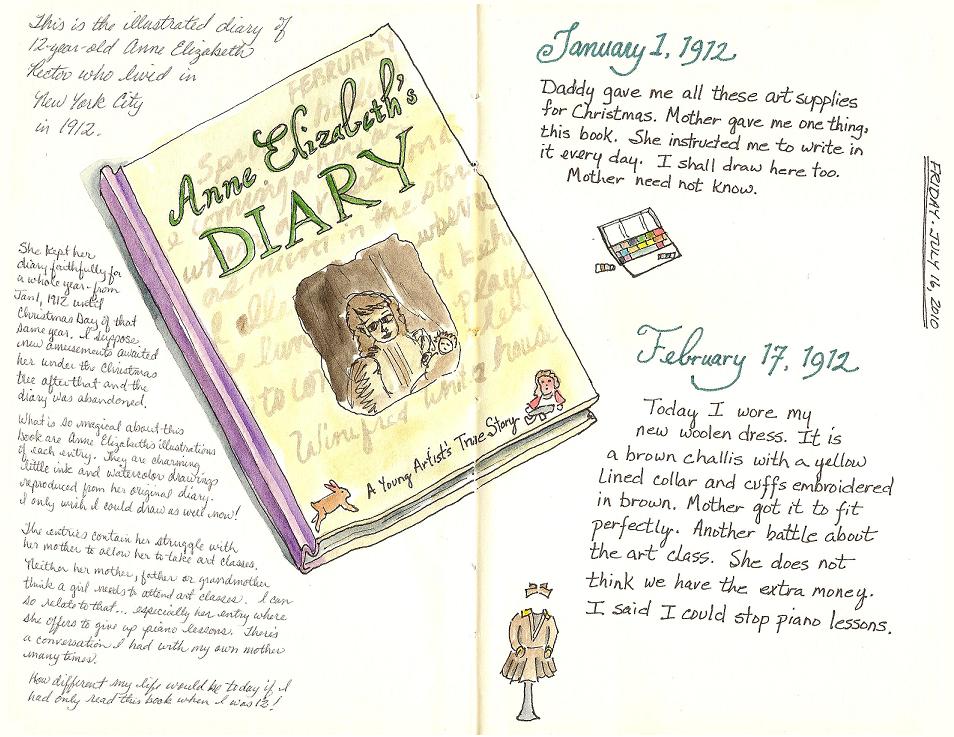 This is the illustrated diary of
12-year-old Anne Elizabeth
Rector who lived in
New York City
in 1912.
She kept her
diary faithfully for
a whole year - from
Jan 1, 1912 until
Christmas Day of that
same year. I suppose
new amusements awaited
her under the Christmas
tree after that and the
diary was abandoned.
What is so magical about this
book are Anne Elizabeth's illustrations
of each entry. They are charming
little ink and watercolor drawings
reproduced from her original diary.
I only wish I could draw as well now!
The entries contain her struggle with
her mother to allow her to take art classes.
Neither her mother, father or grandmother
think a girl needs to attend art classes. I can
so relate to that... especially her entry where
she offers to give up piano lessons. There's
a conversation I had with my own mother
many times.
How different my life would be today if I
had only read this book when I was 12!
FEBRUARY
Anne Elizabeth's
DIARY
Winifred
house
A Young Artist's True Story
January 1, 1912
Daddy gave me all these art supplies
for Christmas. Mother gave me one thing,
this book. She instructed me to write in
it every day. I shall draw here too.
Mother need not know.
February 17, 1912
Today I wore my
new woolen dress. It is
a brown challis with a yellow
lined collar and cuffs embroidered
in brown. Mother got it to fit
perfectly. Another battle about
the art class. She does not
think we have the extra money.
I said I could stop piano lessons.
FRIDAY - JULY 16, 2010